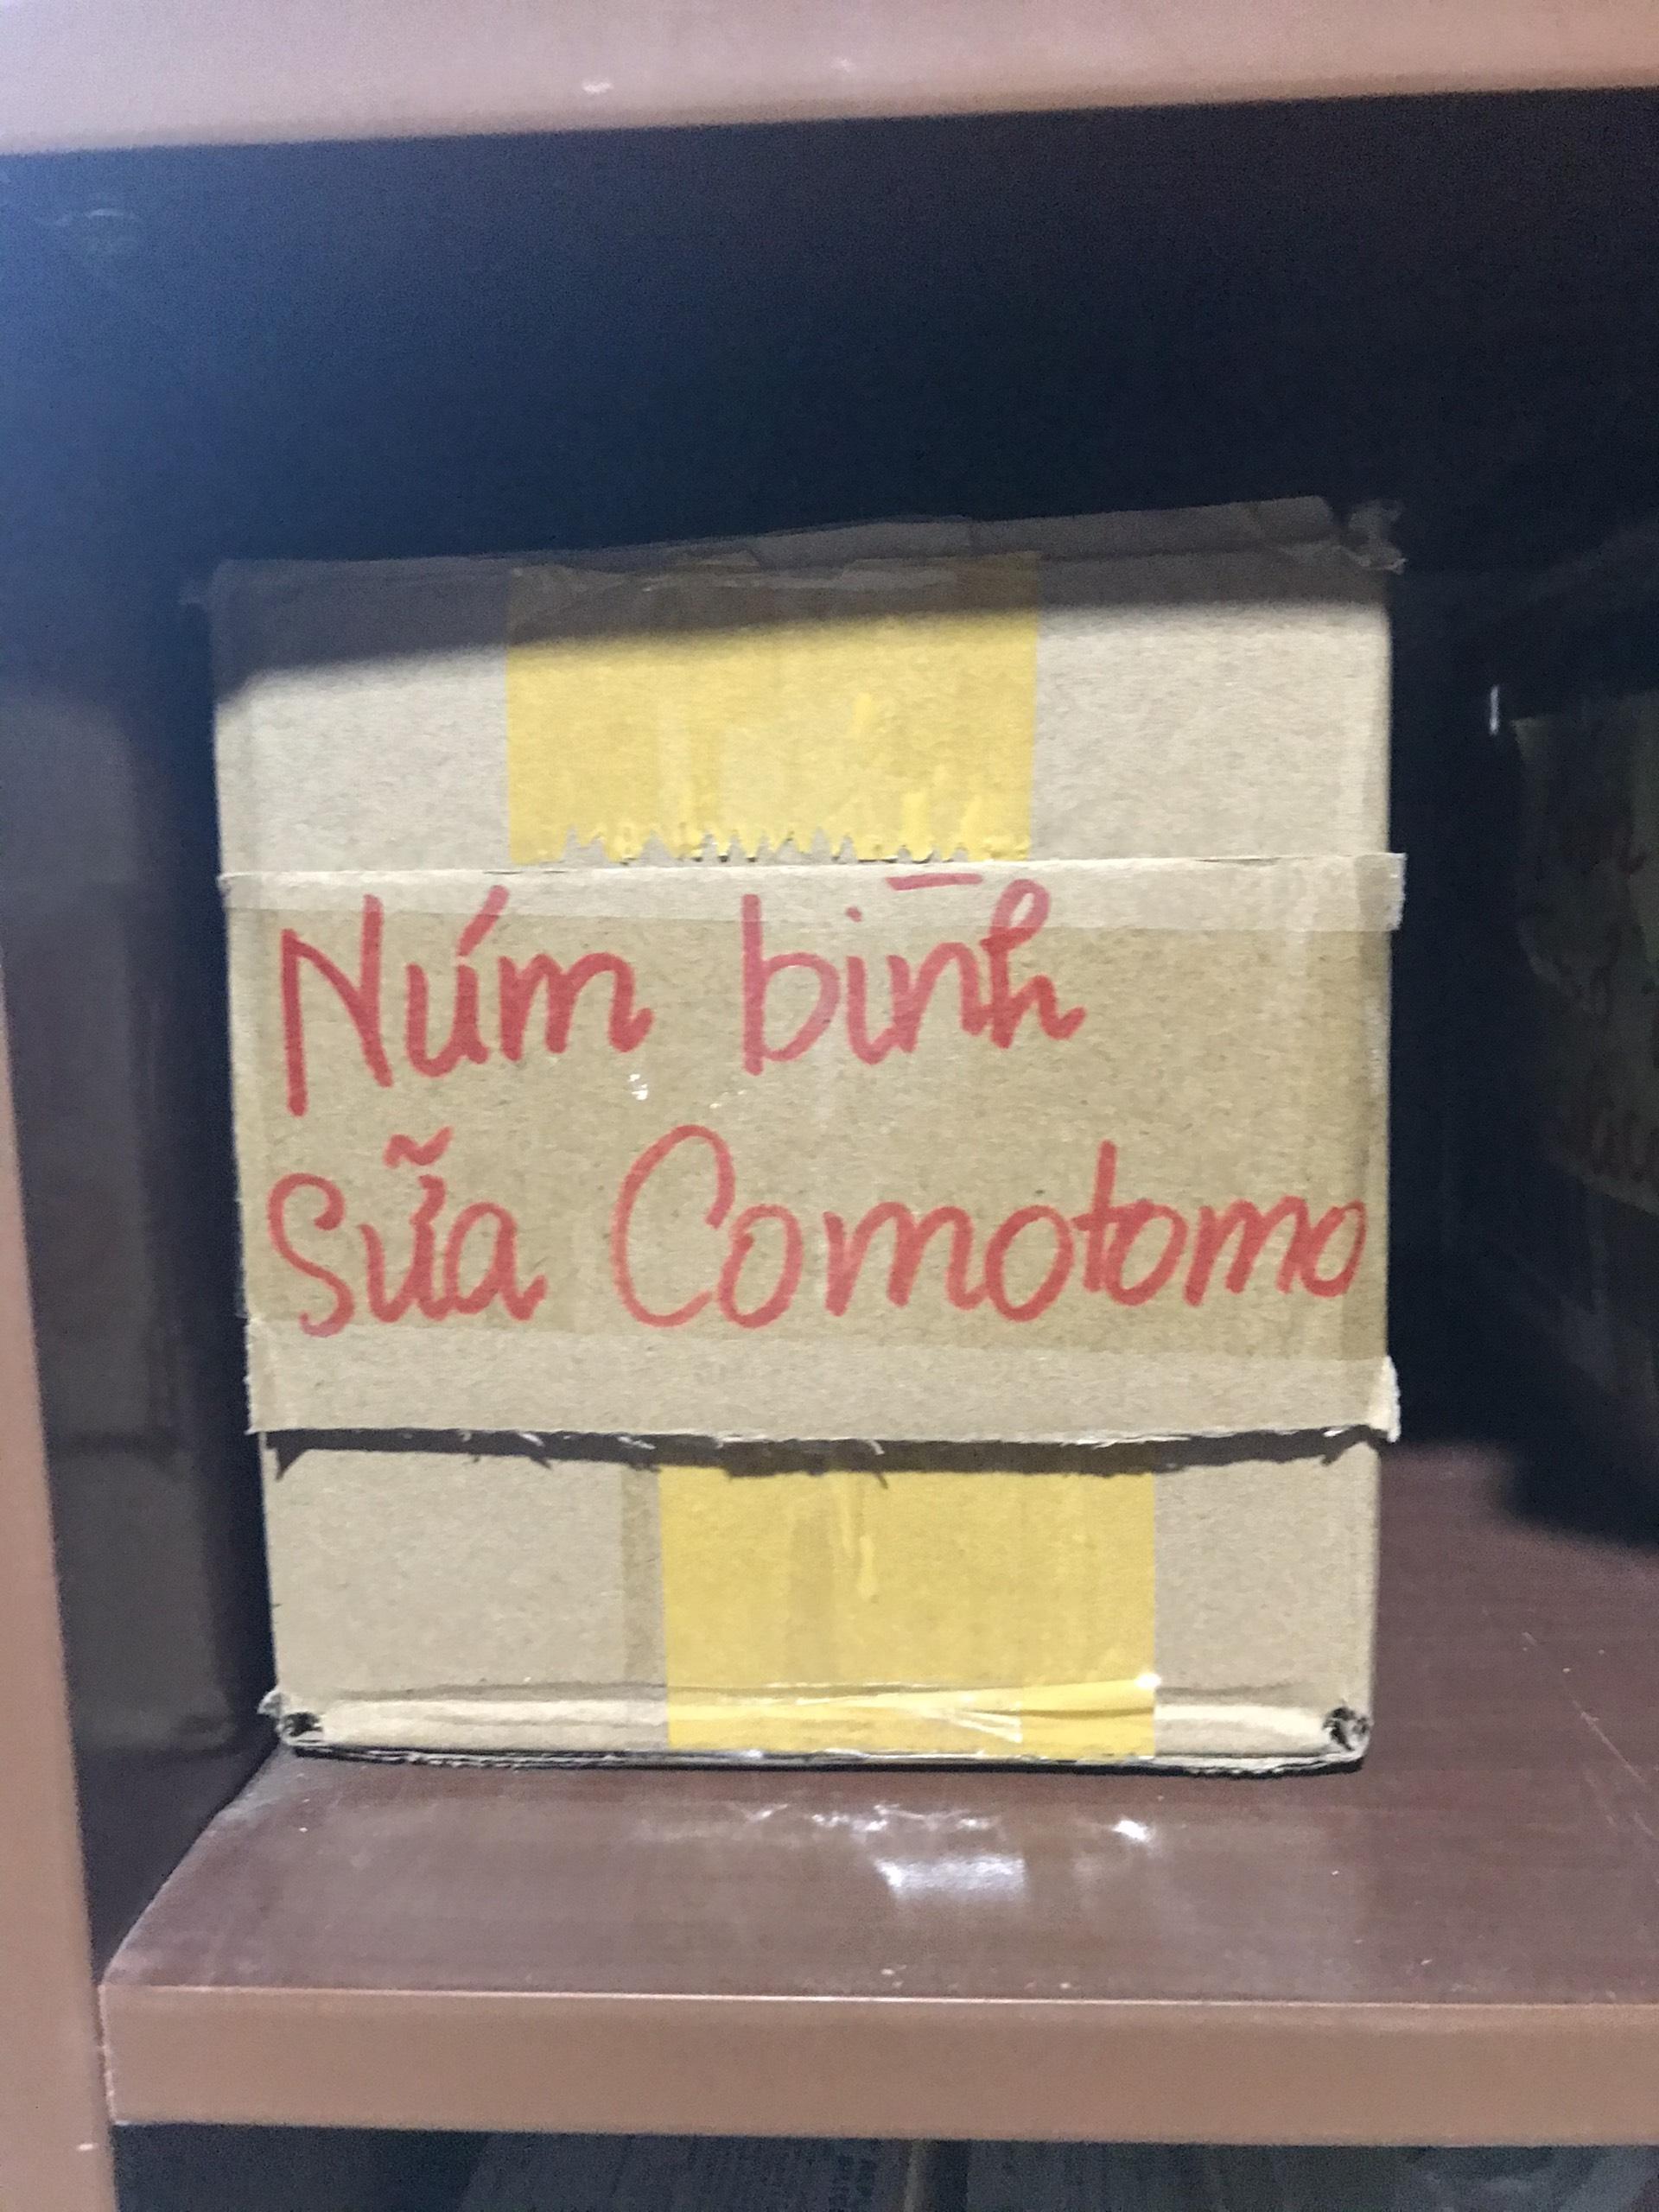 Núm bình
Sữa Comotomo